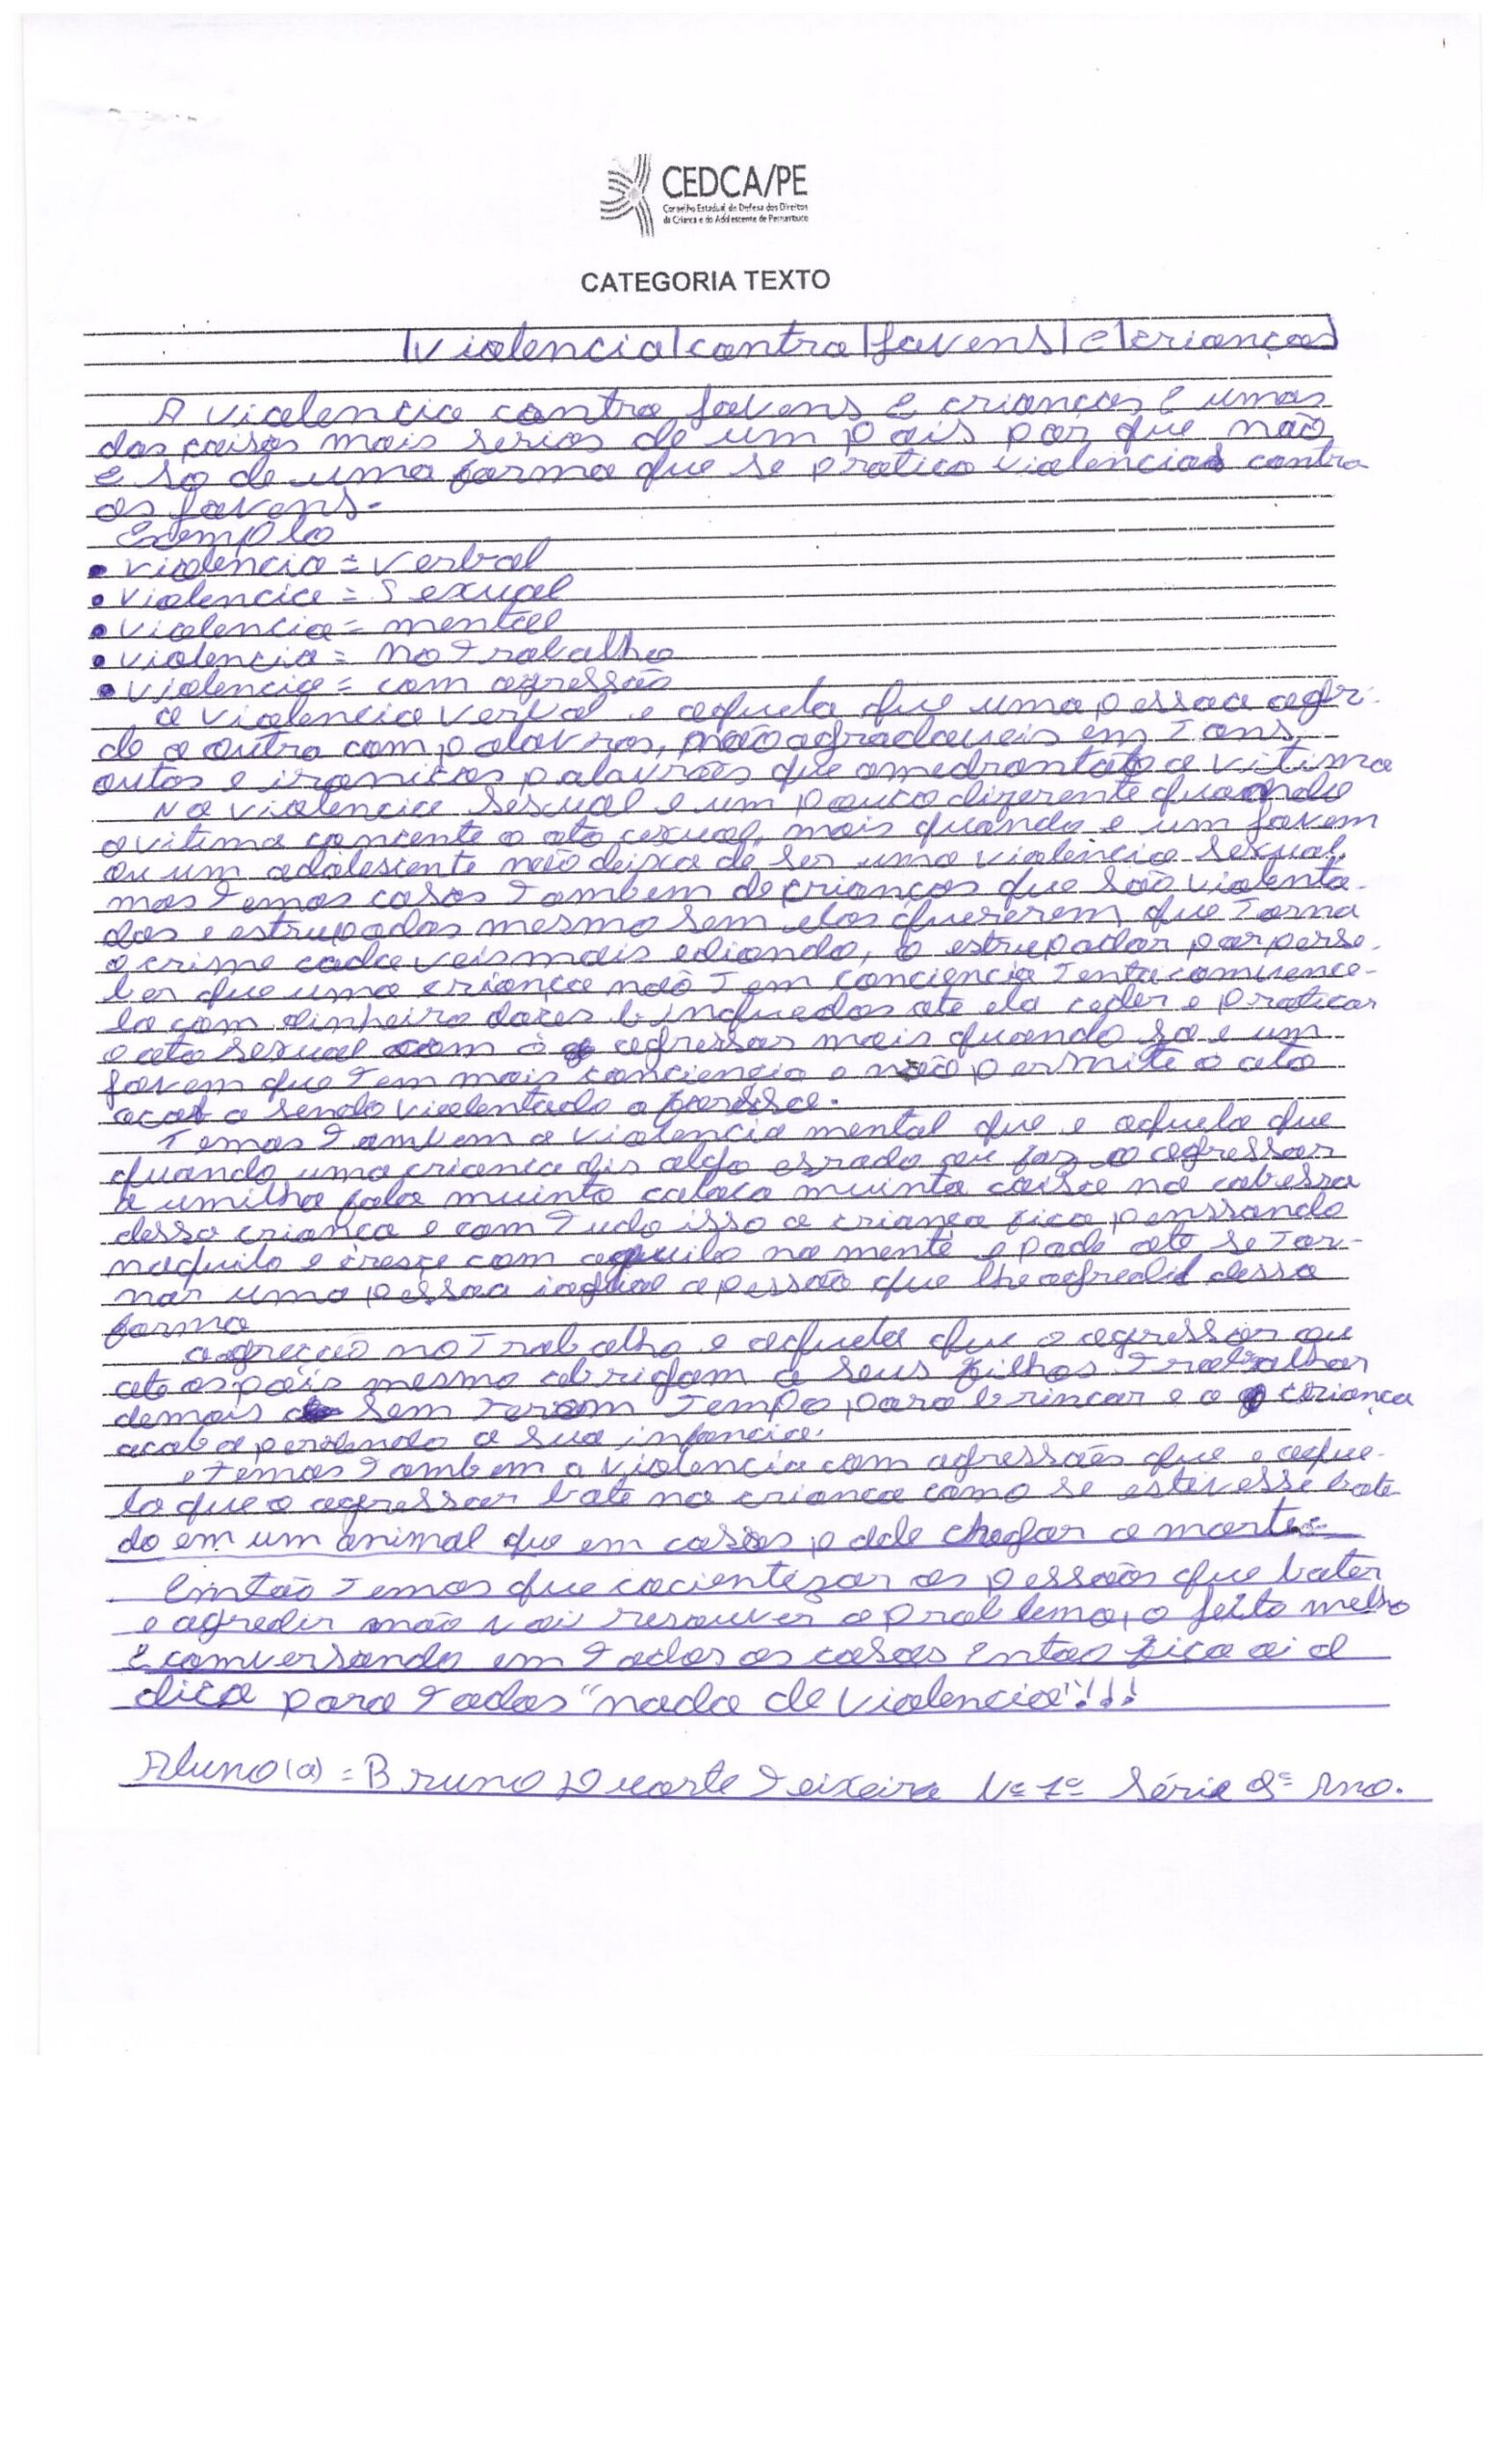 CEDCA/PE
Conselho Estadual de Defesa dos Direitos
da Criança e do Adolescente de Pernambuco
CATEGORIA TEXTO
Violencia contra jovens e crianças
A violencia contra jovens e crianças é umas
das coisas mais serias de um pais por que não
e so de uma forma que se pratica violencias contra
os jovens.
Exemplo
• violencia = verbal
• violencia = Sexual
• violencia = mental
• violencia = no trabalho
• violencia = com agressão
a violencia verbal e aquela que uma pessoa agri-
de a outra com palavras, não agradaveis em tons
autos e ironicos palavrões que amedronta a vitima
Na violencia sexual e um pouco diferente quando
a vitima concente o ato cexual, mais quando e um jovem
ou um adolesiente não deixa de ser uma violencia sexual,
mas temos casos tambem de crianças que são violenta-
das e estrupadas mesmo sem elas quererem, que torna
o crime cada veis mais ediondo, o estrupador por perse-
ber que uma criança não tem conciencia tenta comvence-
la com dinheiro doces brinquedos ate ela ceder e praticar
o ato sexual com o agressor mais quando so e um
jovem que tem mais conciencia e não permite o ato
acaba sendo violentado a forssa.
Temos tambem a violencia mental que e aquela que
quando uma crianca dis algo errado ou faz o agressor
a umilha fala muinto coloca muinta coisa na cabessa
dessa criança e com tudo isso a criança fica penssando
naquilo e cresçe com aquilo na mente e pode ate se tor-
nar uma pessoa iagual a pessão que lhe agredil dessa
forma
agreção no trabalho e aquela que o agressor ou
ate os pais mesmo obrigam a seus filhos trabalhar
demais sem terem tempo para brincar e a criança
acaba perdendo a sua infancia.
e temos tambem a violencia com agressões que e aque-
la que o agressor bate na crianca como se estivesse bate
do em um animal que em casos pode chegar a morte.
Emtão temos que cocientizar as pessoãs que bater
e agredir não vai resouver o problema, o jeito melho
é comversando em todos os casos então fica ai a
dica para todos "nada de violencia"!!!
Aluno(a) = Bruno Duarte Teixeira Nº 7º Série 8º Ano.